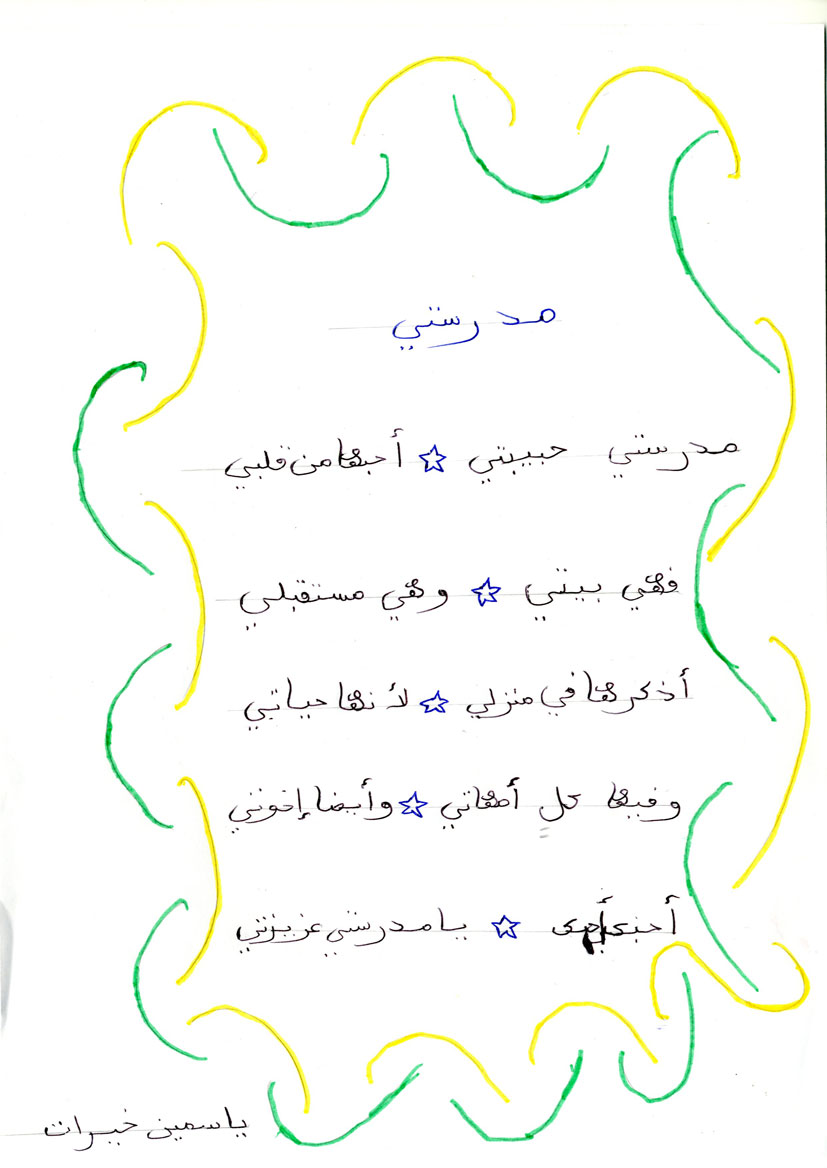 مدرستي
مدرستي حبيبتي ☆ أحبها من قلبي
فهي بيتي ☆ وهي مستقبلي
أذكرها في منزلي ☆ لأنها حياتي
وفيها كل أمهاتي ☆ وأيضا إخوتي
☆ يا مدرستي عزيزتي
ياسمين خيرات